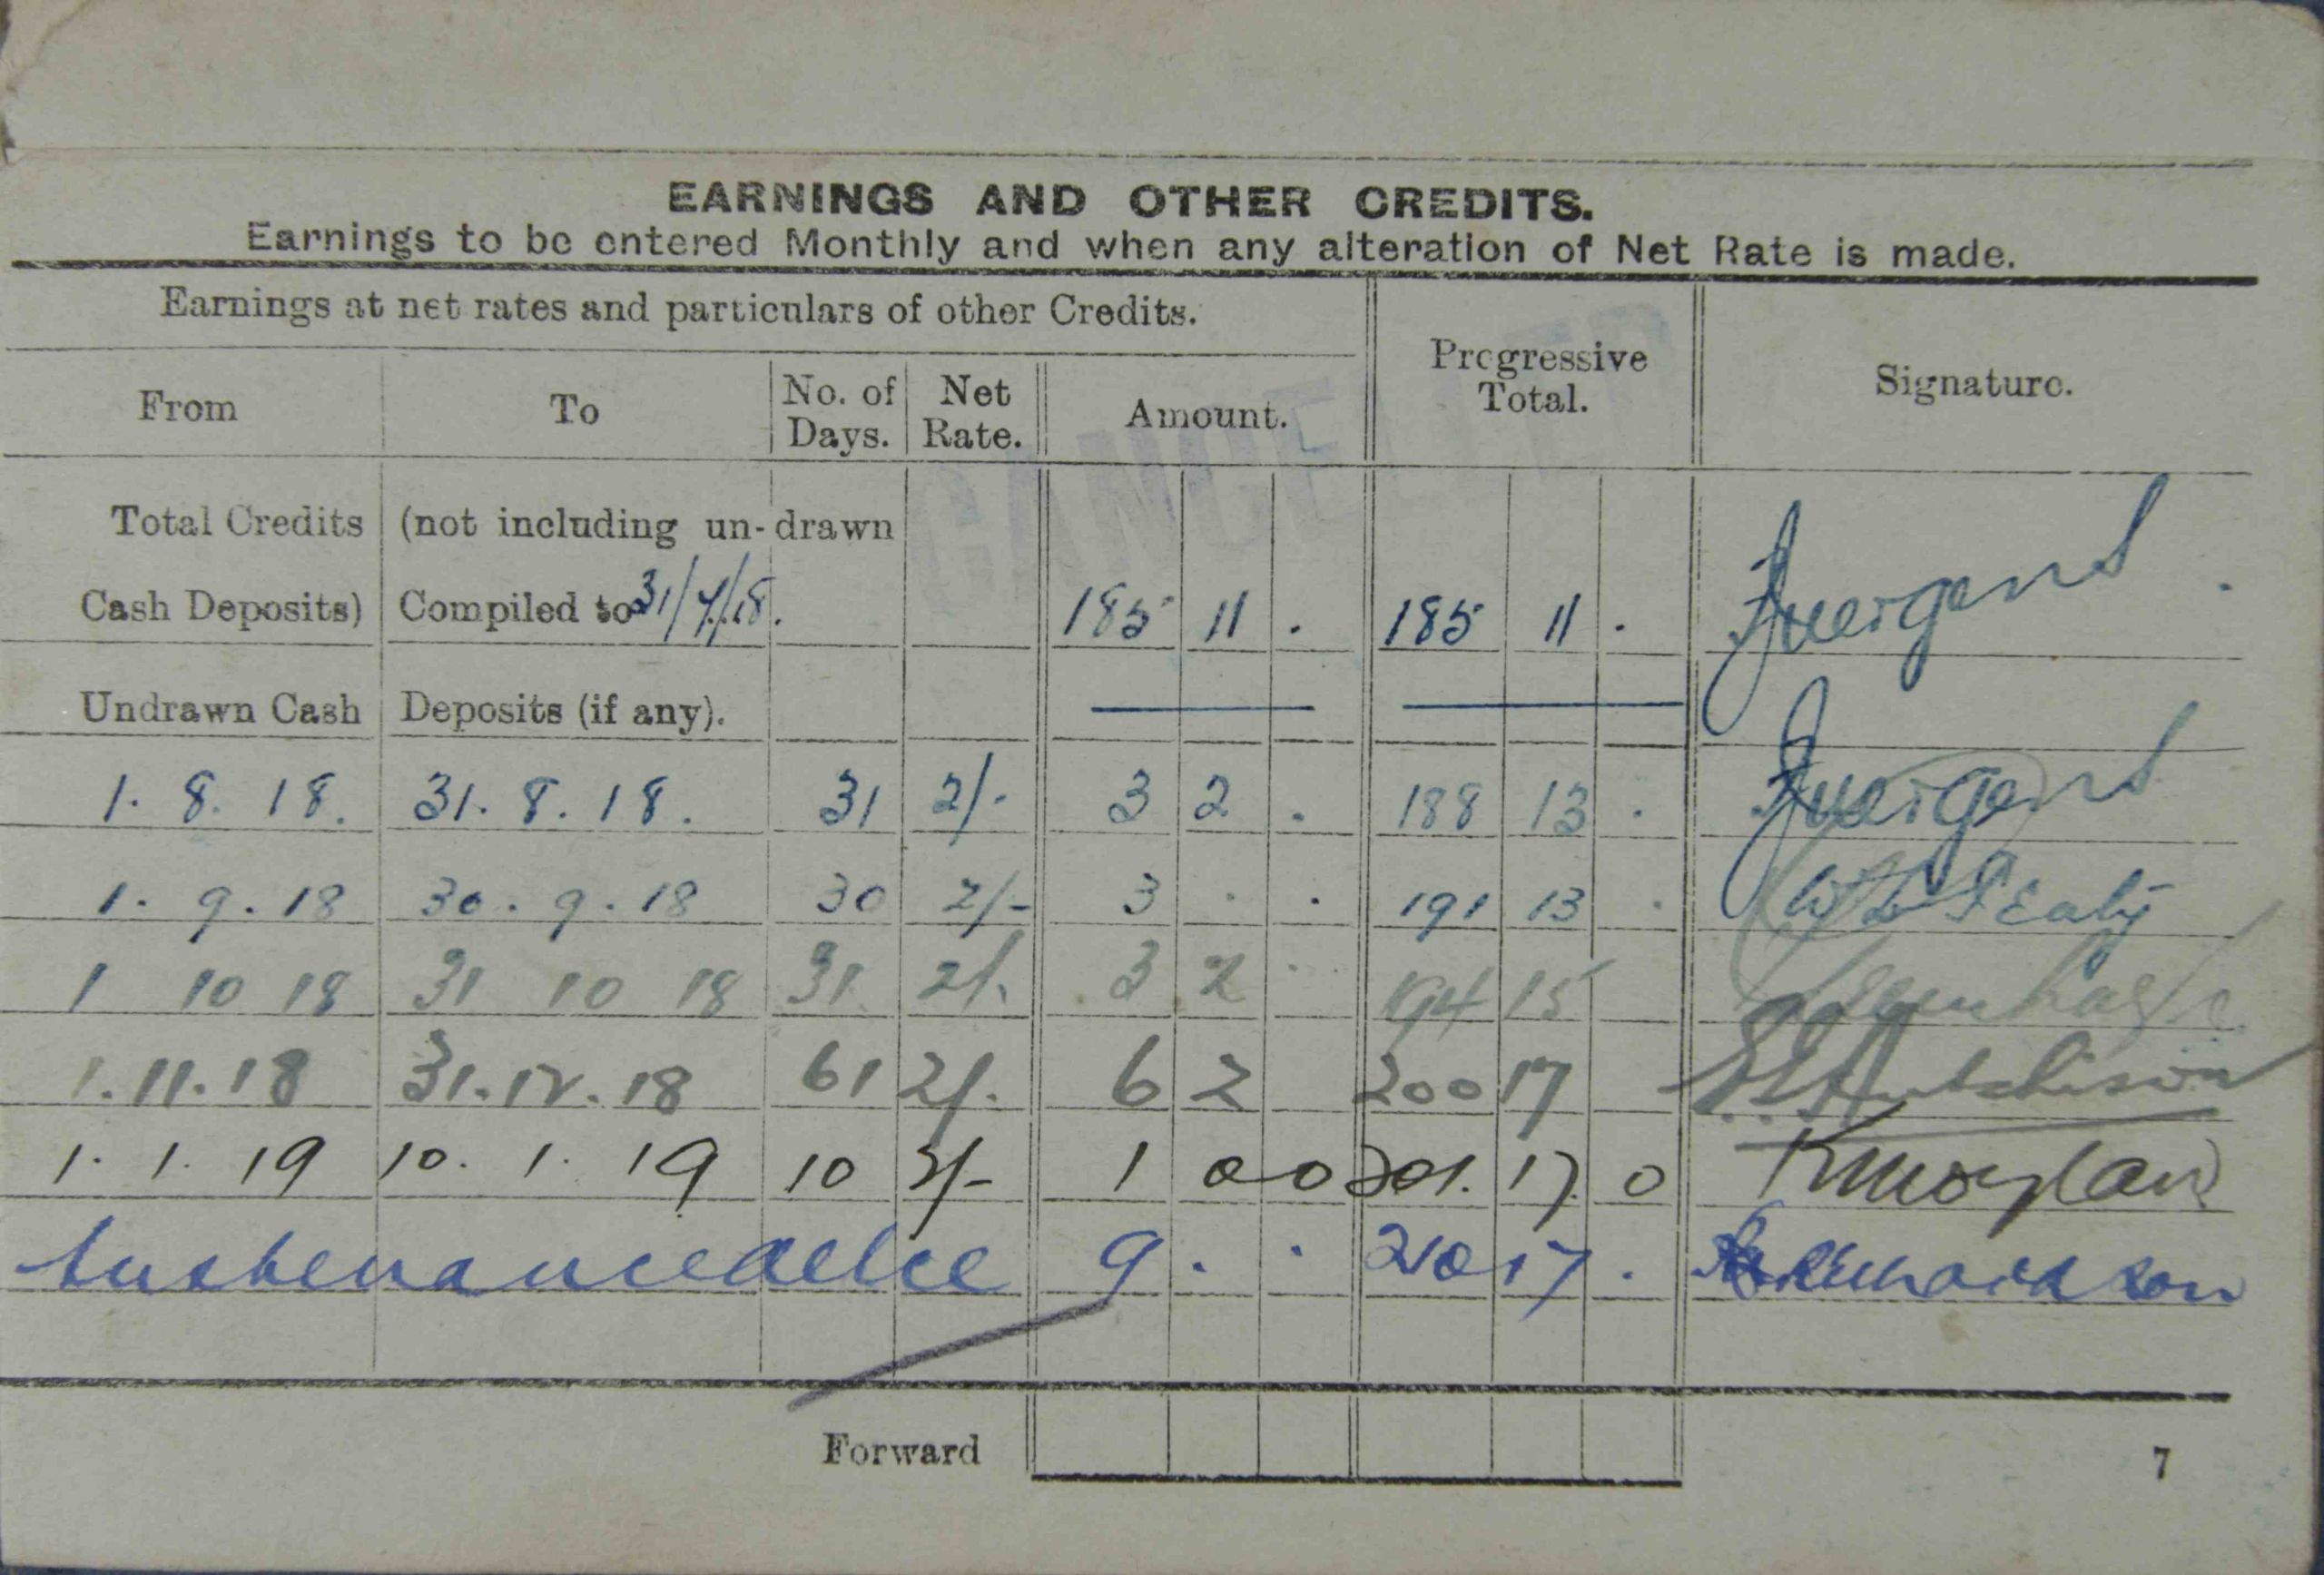 EARNINGS AND OTHER CREDITS.
Earnings to be entered Monthly and when any alteration of Net Rate is made.
Earnings at net rates and particulars of other Credits.
From To No. of Days. Net Rate. Amount. Progressive Total. Signature.
CANCELLED
Total Credits (not including un-drawn
Cash Deposits) Compiled to 31/7/18. 185 11 . 185 11 .
Undrawn Cash Deposits (if any). — —
1. 8. 18. 31. 8. 18. 31 2/- 3 2 . 188 13 .
1. 9. 18 30. 9. 18 30 2/- 3 . . 191 13 .
1 10 18 31 10 18 31 2/. 3 2 . 194 15
1.11.18 31.12.18 61 2/. 6 2 200 17 Hutchison
1. 1. 19 10. 1. 19 10 2/- 1 0 0 201. 17. 0
Sustenance 9 . . 210 17 . Richardson
Forward
7